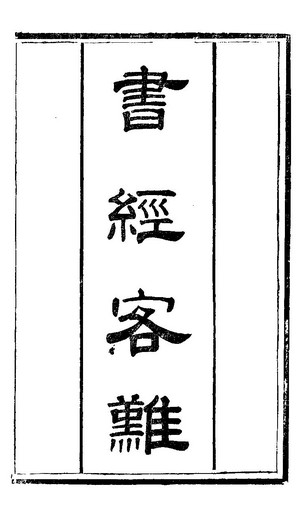 書經客難